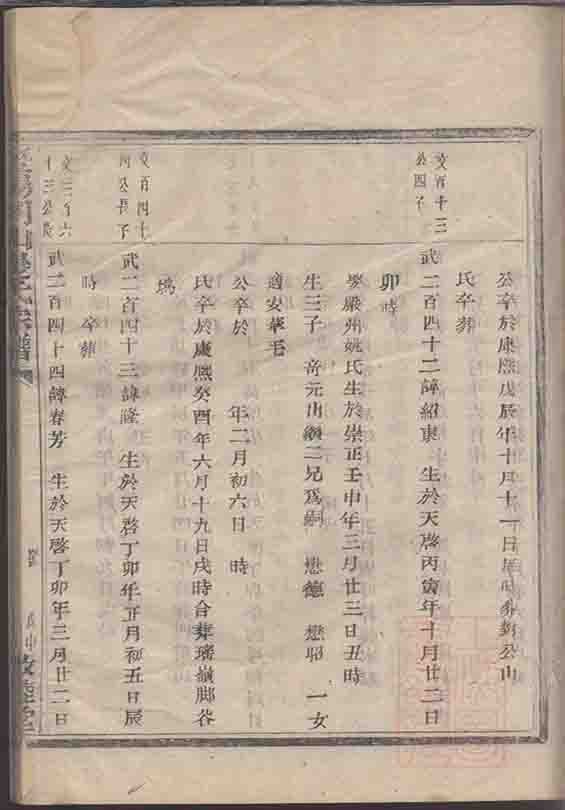 公卒於康熙戊辰年十月十一日 時葬 公山
氏卒葬
文百十三
公四子
武二百四十二諱紹東 生於天啓丙寅年十月廿二日
卯時
娶嚴州姚氏生於崇正壬申年三月廿三日丑時
生三子 奇元出繼二兄爲嗣 懋德 懋昭 一女
適安 毛
公卒於 年二月初六日 時
氏卒於康熙癸酉年六月十九日戌時合葬 嶺脚谷
塢
文百四十
公長子
武二百四十三諱隆 生於天啓丁卯年正月初五日辰
時 卒葬
文三百六
十三公長
武二百四十四諱春芳 生於天啓丁卯年三月廿二日
宗譜